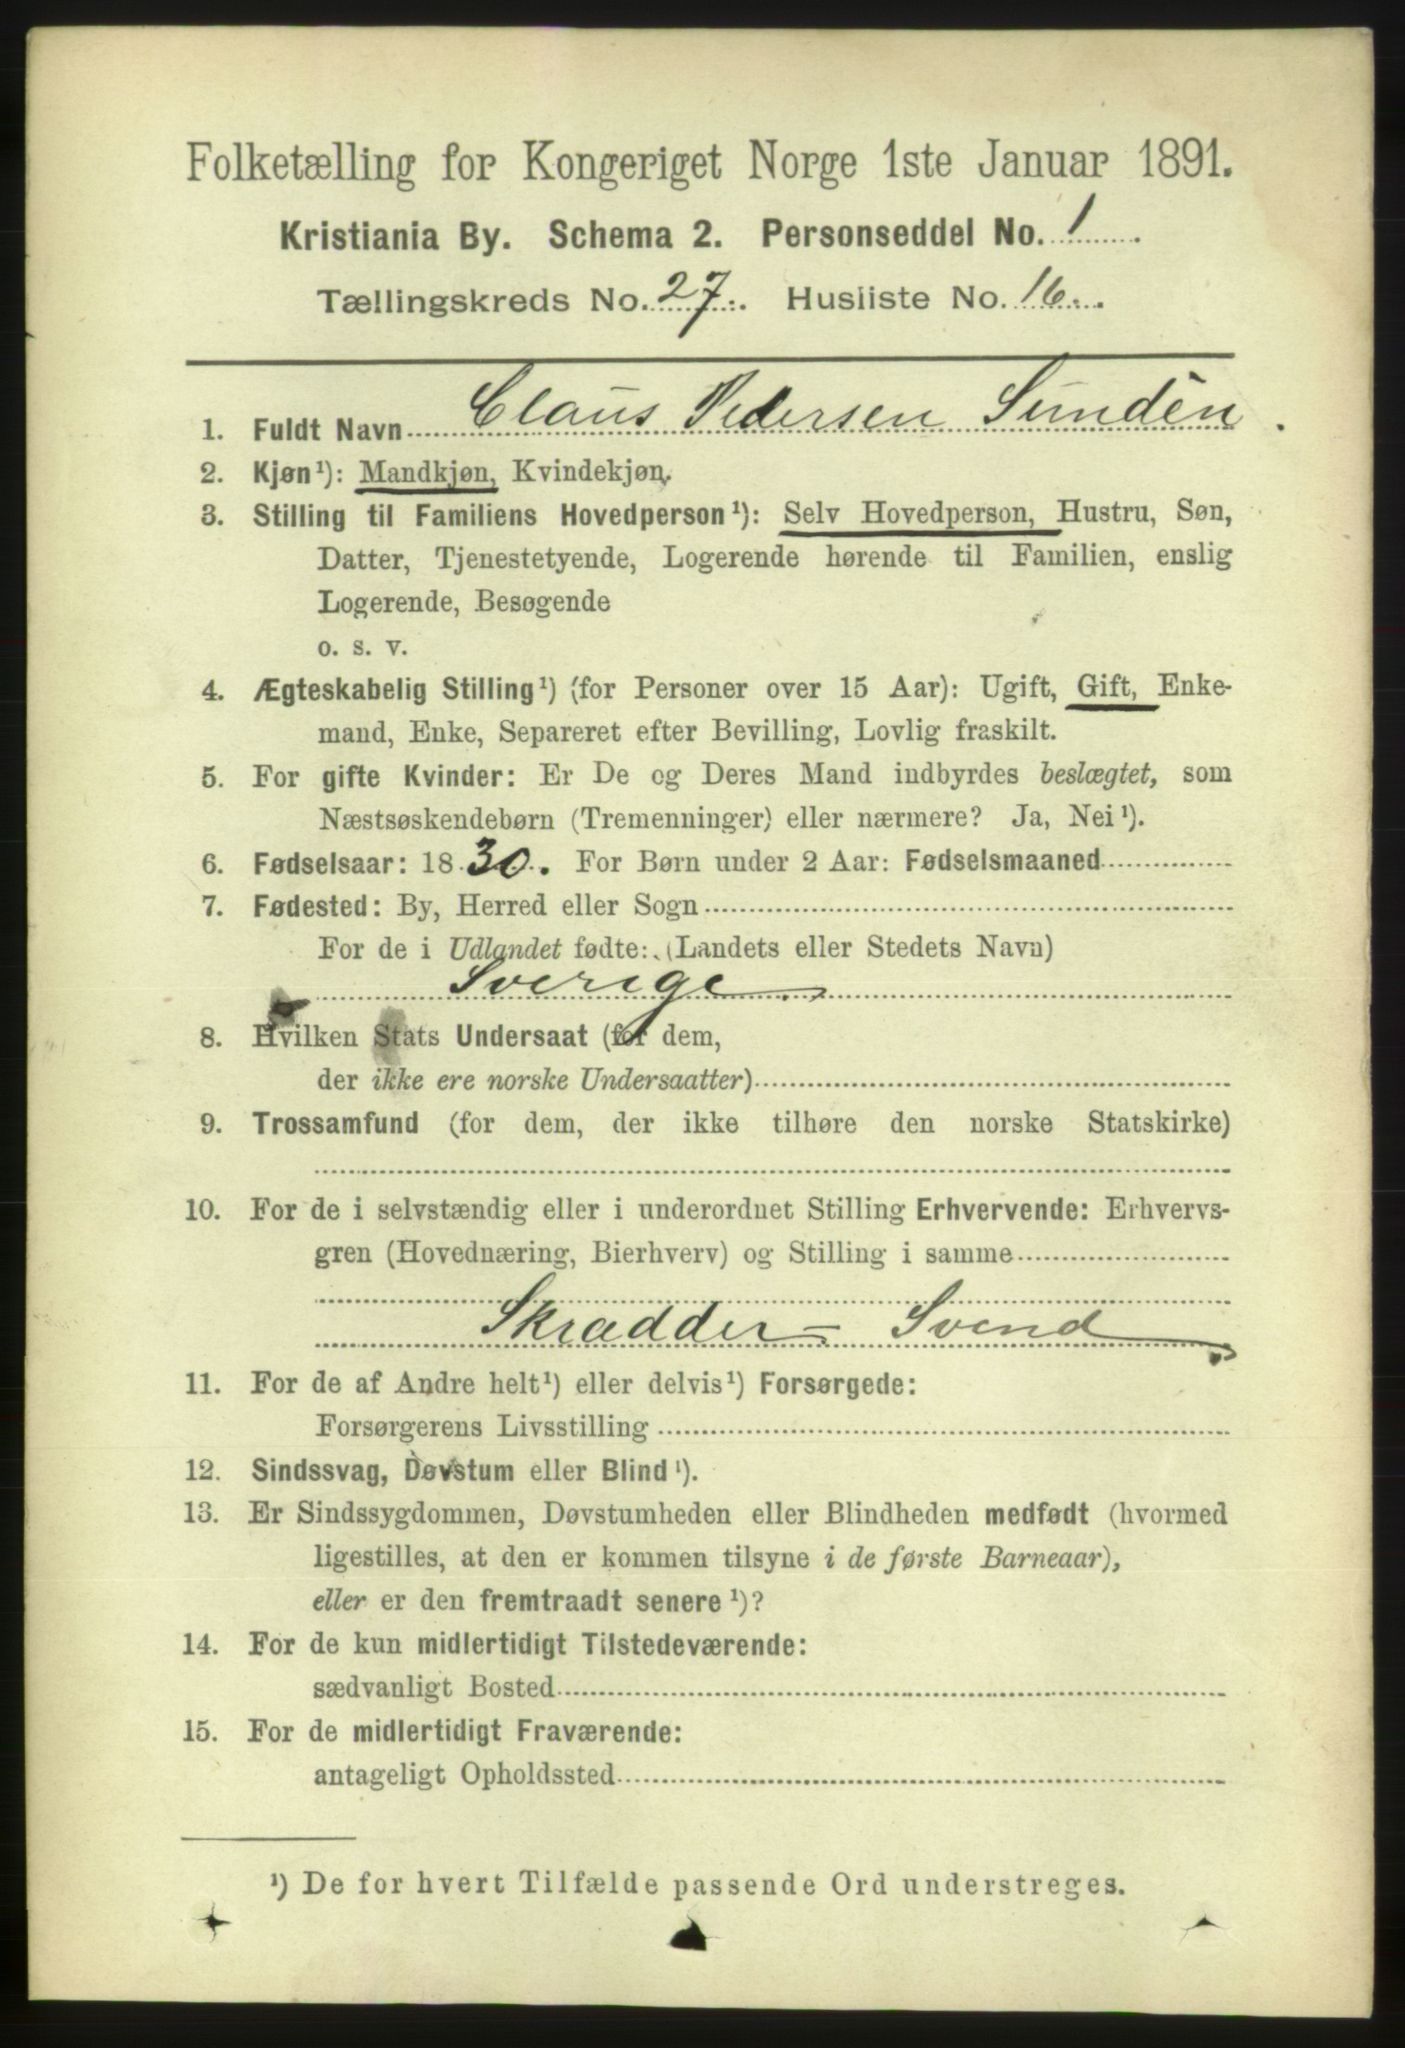 Folketælling for Kongeriget Norge 1ste Januar 1891.
Kristiania By. Schema 2. Personseddel No. 1
Tællingskreds No. 27. Husliste No. 16.
1. Fuldt Navn Claus Pedersen Sundén.
2. Kjøn¹): Mandkjøn, Kvindekjøn.
3. Stilling til Familiens Hovedperson¹): Selv Hovedperson, Hustru, Søn,
Datter, Tjenestetyende, Logerende hørende til Familien, enslig
Logerende, Besøgende
o. s. v.
4. Ægteskabelig Stilling¹) (for Personer over 15 Aar): Ugift, Gift, Enke-
mand, Enke, Separeret efter Bevilling, Lovlig fraskilt.
5. For gifte Kvinder: Er De og Deres Mand indbyrdes beslægtet, som
Næstsøskendebørn (Tremenninger) eller nærmere? Ja, Nei¹).
6. Fødselsaar: 1830. For Børn under 2 Aar: Fødselsmaaned
7. Fødested: By, Herred eller Sogn
For de i Udlandet fødte: (Landets eller Stedets Navn)
Sverige
8. Hvilken Stats Undersaat (for dem,
der ikke ere norske Undersaatter)
9. Trossamfund (for dem, der ikke tilhøre den norske Statskirke)
10. For de i selvstændig eller i underordnet Stilling Erhvervende: Erhvervs-
gren (Hovednæring, Bierhverv) og Stilling i samme
Skrædder- Svend
11. For de af Andre helt¹) eller delvis¹) Forsørgede:
Forsørgerens Livsstilling
12. Sindssvag, Døvstum eller Blind¹).
13. Er Sindssygdommen, Døvstumheden eller Blindheden medfødt (hvormed
ligestilles, at den er kommen tilsyne i de første Barneaar),
eller er den fremtraadt senere¹)?
14. For de kun midlertidigt Tilstedeværende:
sædvanligt Bosted
15. For de midlertidigt Fraværende:
antageligt Opholdssted
¹) De for hvert Tilfælde passende Ord understreges.